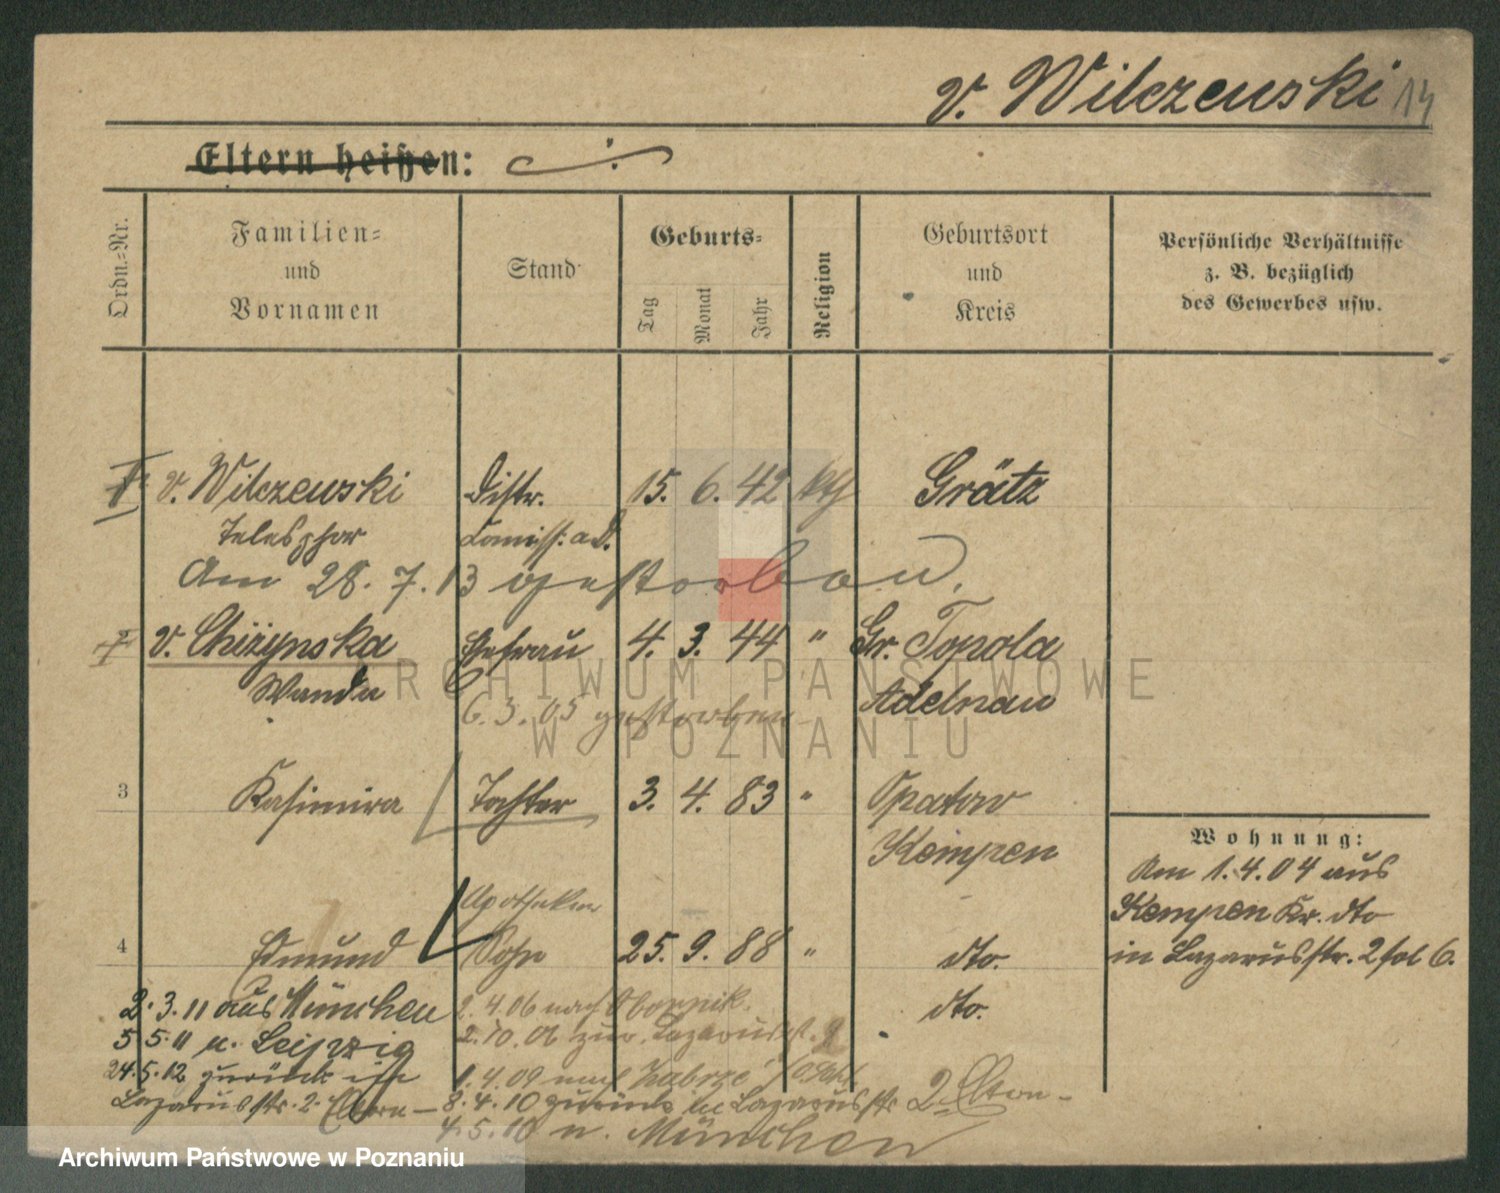 v. Wilczewski 14
Eltern heißen:
Ordn.-Nr.
Familien-
und
Vornamen
Stand
Geburts-
Tag
Monat
Jahr
Religion
Geburtsort
und
Kreis
Persönliche Verhältnisse
z. B. bezüglich
des Gewerbes usw.
v. Wilczewski Distr. 15. 6. 42 kth Grätz
Telesphor Comiss: a.D.
Am 28. 7. 13 gestorben.
v. Chiżynska Ehefrau 4. 3. 44 " Gr. Topola
Wanda Adelnau
6. 3. 05 gestorben
3 Kasimira Tochter 3. 4. 83 " Opatow
Kempen
Wohnung:
Am 1.4.04 aus
Kempen Kr. dto
in Lazarusstr. 2 fol 6.
Apotheker
4 Edmund Sohn 25. 9. 88 " dto.
dto.
2. 3. 11 aus München
5 5. 11 n. Leipzig
24.5.12 zurück
Lazarusstr. 2. Eltern
2. 4. 06 nach Obornik.
2. 10. 06 zur. Lazarusstr. 2
1. 4. 09 nach Zabrze
8. 4. 10 zurück Lazarusstr 2 Eltern
4. 5. 10 n. München
ARCHIWUM PAŃSTWOWE
W POZNANIU
Archiwum Państwowe w Poznaniu